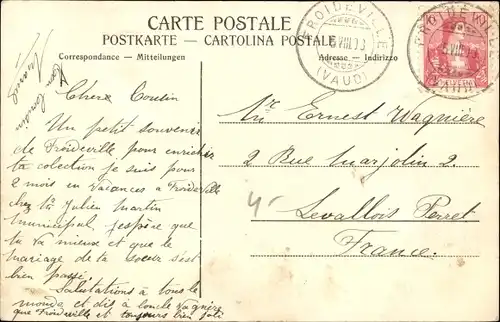 CARTE POSTALE
POSTKARTE - CARTOLINA POSTALE
Correspondance - Mitteilungen
Adresse - Indirizzo
FROIDEVILLE
VIII
(VAUD)
FROIDEVILLE
VIII
(VAUD)
HELVETIA
Chere Cousin
Un petit souvenir
de Froideville pour enrichir
ta colection je suis pour
2 mois en vacances a Froideville
chez Mr Julien Martin
municipal, j'espère que
tu va mieux et que le
mariage de ta soeur s'est
bien passé.
Salutations a tous le
monde et dis à loncle Wagnière
que Froideville et toujours bien joli
Mr Ernest Wagnière
2 Rue Marjolin 2.
Levallois Perret
France.